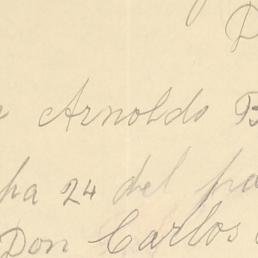 Arnoldo B
ha 24 del pa
Don Carlos